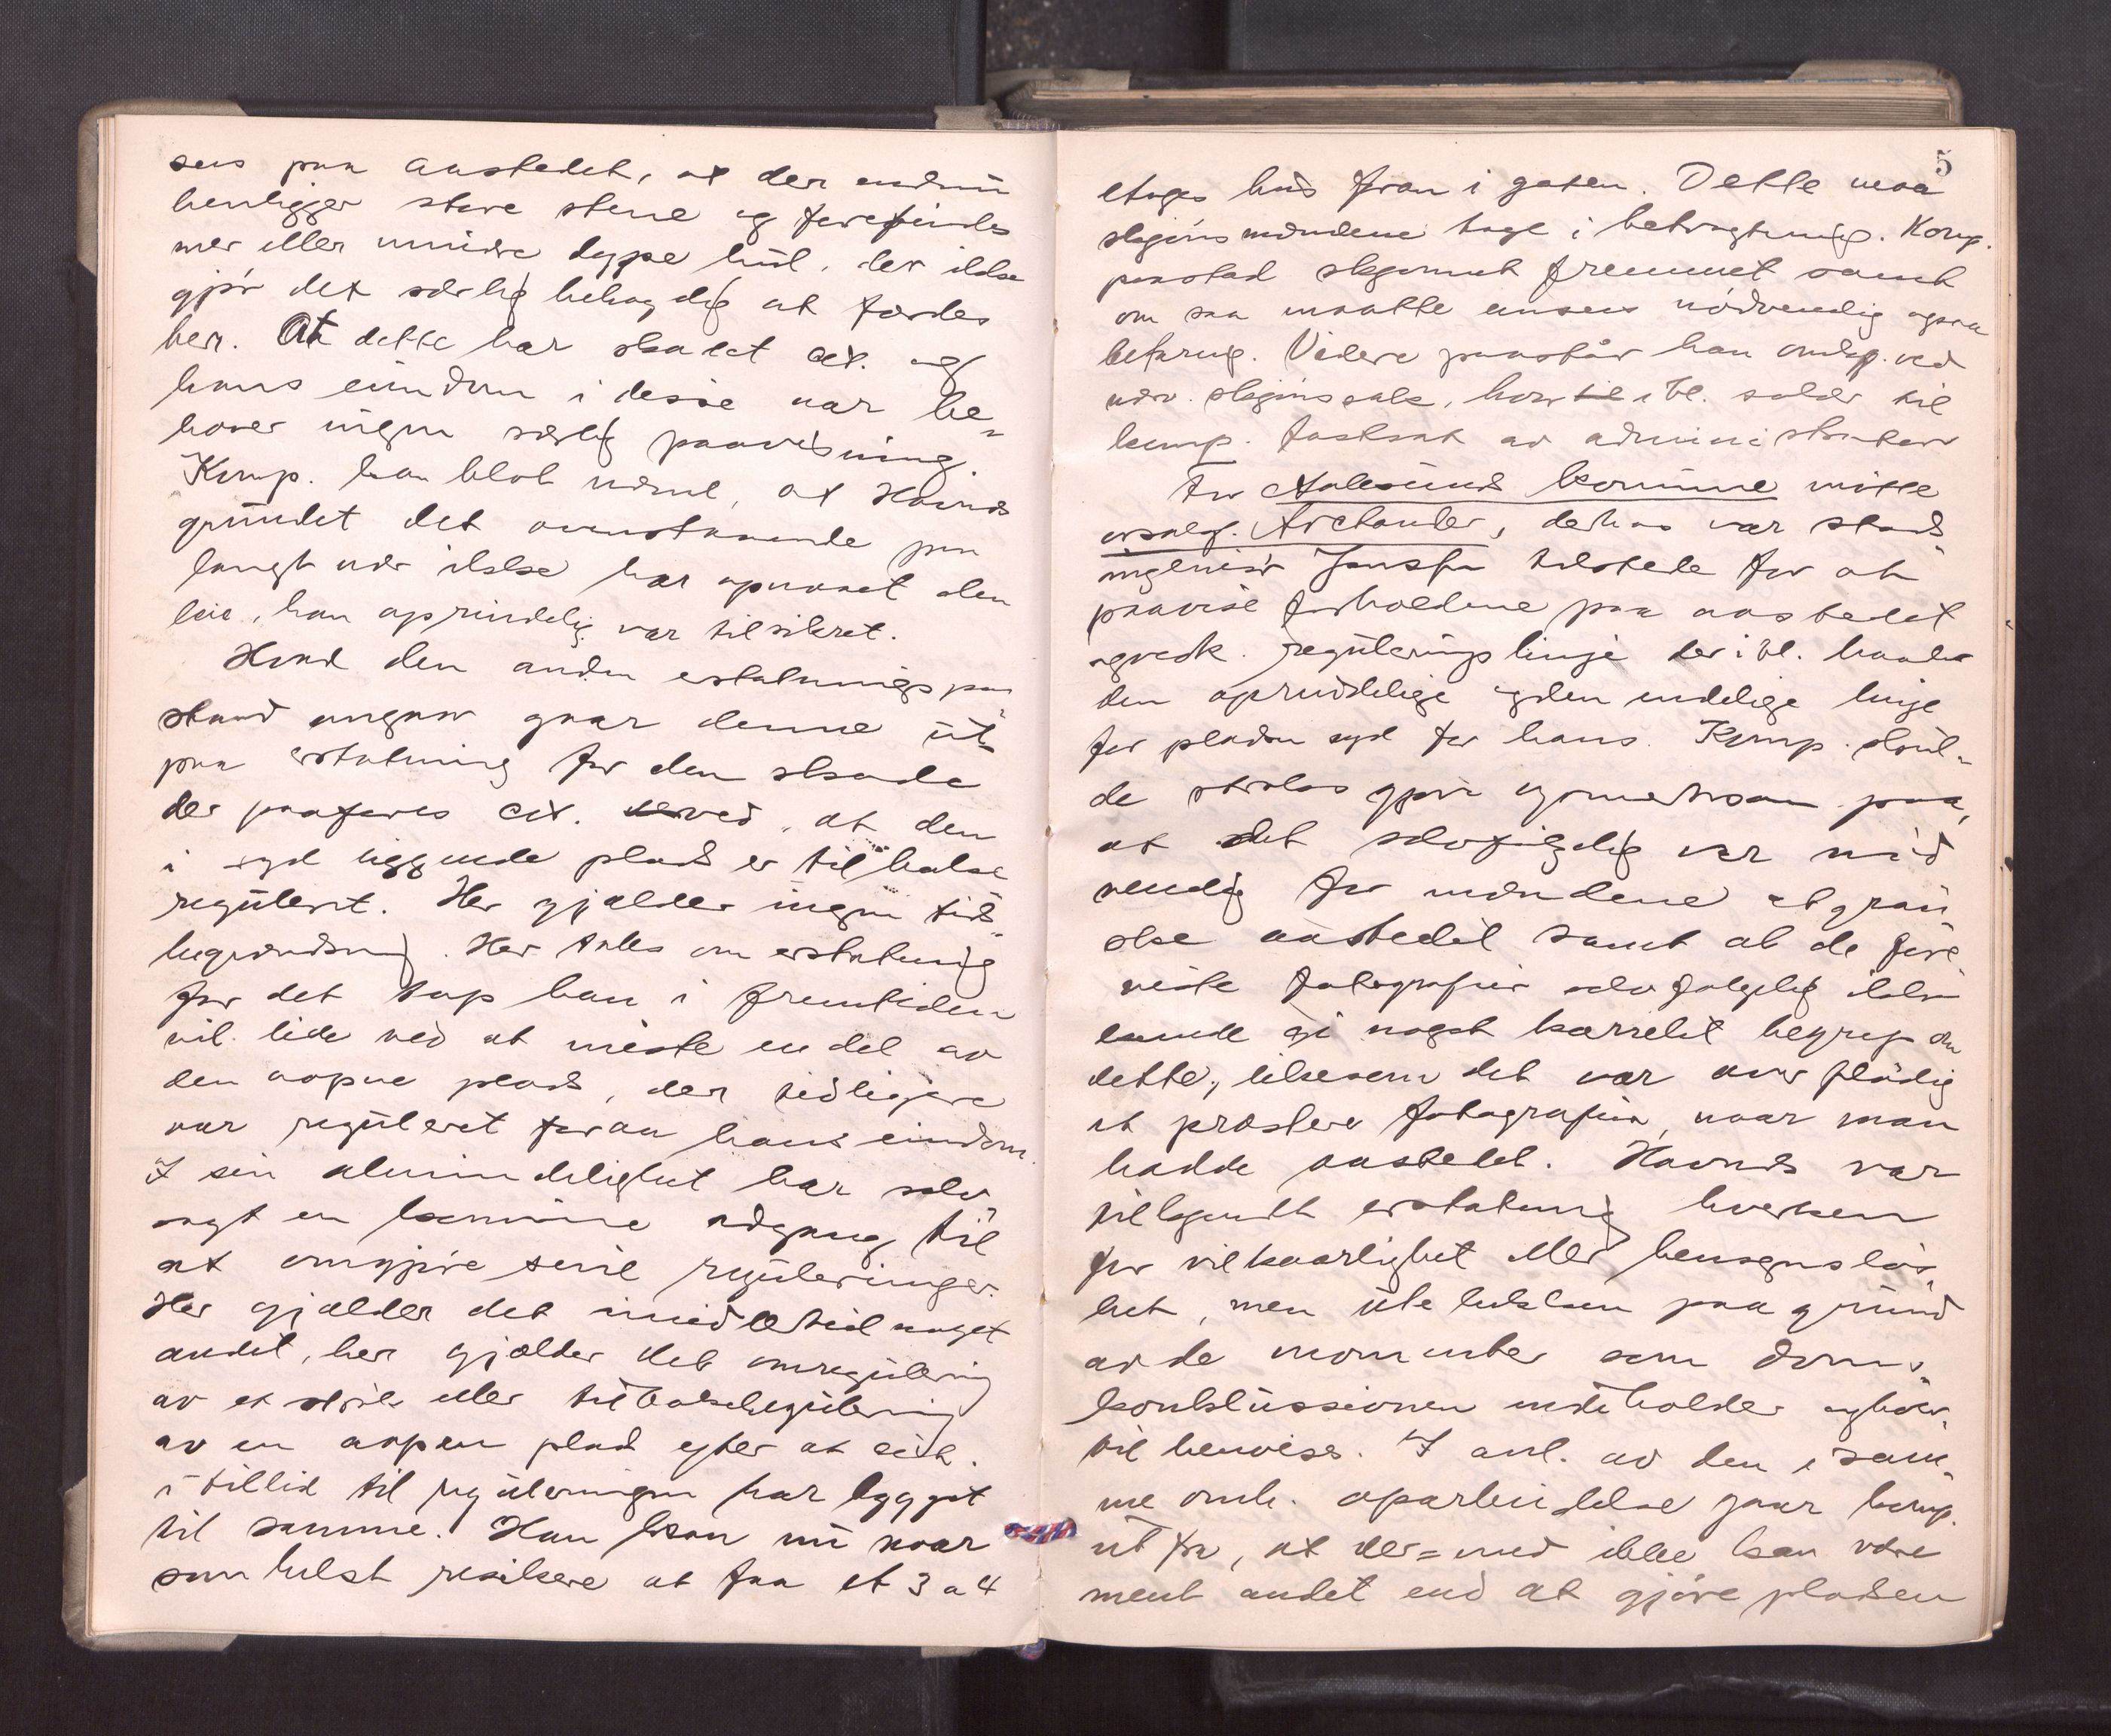 sees paa aastedet, at der endnu
henligger store stene og forefindes
mer eller mindre dyppe hul, der ikke
gjør det særlig behagelig at færdes
her. At dette har skadet cit. og
hans eiendom i disse aar be-
høver ingen særlig paavisning.
Komp. kan blot nævne, at Havnds
grundet det ovenstaaende paa
langt nær ikke har opnaaet den
leie, han oprindelig var tilsikret.
Hvad den anden erstatningspaa-
stand angaar gaar denne ut
paa erstatning for den skade
der paaføres cit. ved, at den
i syd liggende plads er tilbake
reguleret. Her gjælder ingen tids-
begrændsning. Her tales om erstatning
for det tap han i fremtiden
vil lide ved at miste en del av
den aapne plads, der tidligere
var reguleret foran hans eiendom.
I sin almindelighet har selv
sagt en kommune adgang til
at omgjøre sine reguleringer.
Her gjælder det imidlertid noget
andet, her gjælder det omregulering
av et strøk eller tilbakeregulering
av en aapen plads efter at cit.
i tillid til reguleringen har bygget
til samme. Han kan nu naar
som helst risikere at faa et 3 a 4
5
etages hus foran i gaten. Dette maa
skjønsmændene tage i betragtning. Komp.
paastod skjønnet fremmet samt
om saa maatte ansees nødvendig ogsaa
befaring. Videre paastaar han omkp. ved
nærv. skjønssak, hvor i bl. salær til
komp. fastsat av administrator
For Aalesunds kommune møtte
orsakf. Archander, derhos var stads-
ingeniør Jensen tilstede for at
paavise forholdene paa aastedet
og vedk. reguleringslinje der i bl. baade
den oprindelige og den endelige linje
for pladsen syd for hans. Komp. skul-
de straks gjøre opmerksom paa,
at det selvfølgelig var nød-
vendig for mændene at gran-
ske aastedet samt at de fore-
viste fotografier selvfølgelig ikke
kunde gi noget korrekt begrep om
dette, likesom det var overflødig
at præstere fotografier, naar man
hadde aastedet. Havnds var
tilkjendt erstatning hverken
for vilkaarlighet eller hensynsløs-
het, men utelukken paa grund
av de momenter som doms-
konklussionen indeholder og hvor-
til henvises. I anl. av den i sam-
me omh. oparbeidelse gaar komp.
ut fra, at der=med ikke kan være
ment andet end at gjøre pladsen